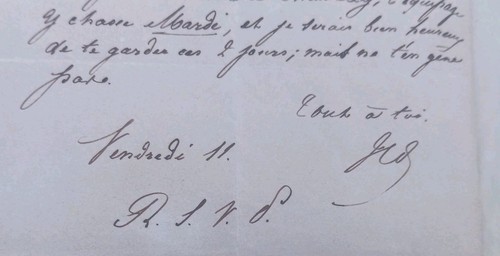 l'équipage
y chasse Mardi, et je serais bien heureux
de te garder ces 2 jours; mais ne t'en gène
pas.
Tout à toi.
Vendredi 11.
R. S. V. P.